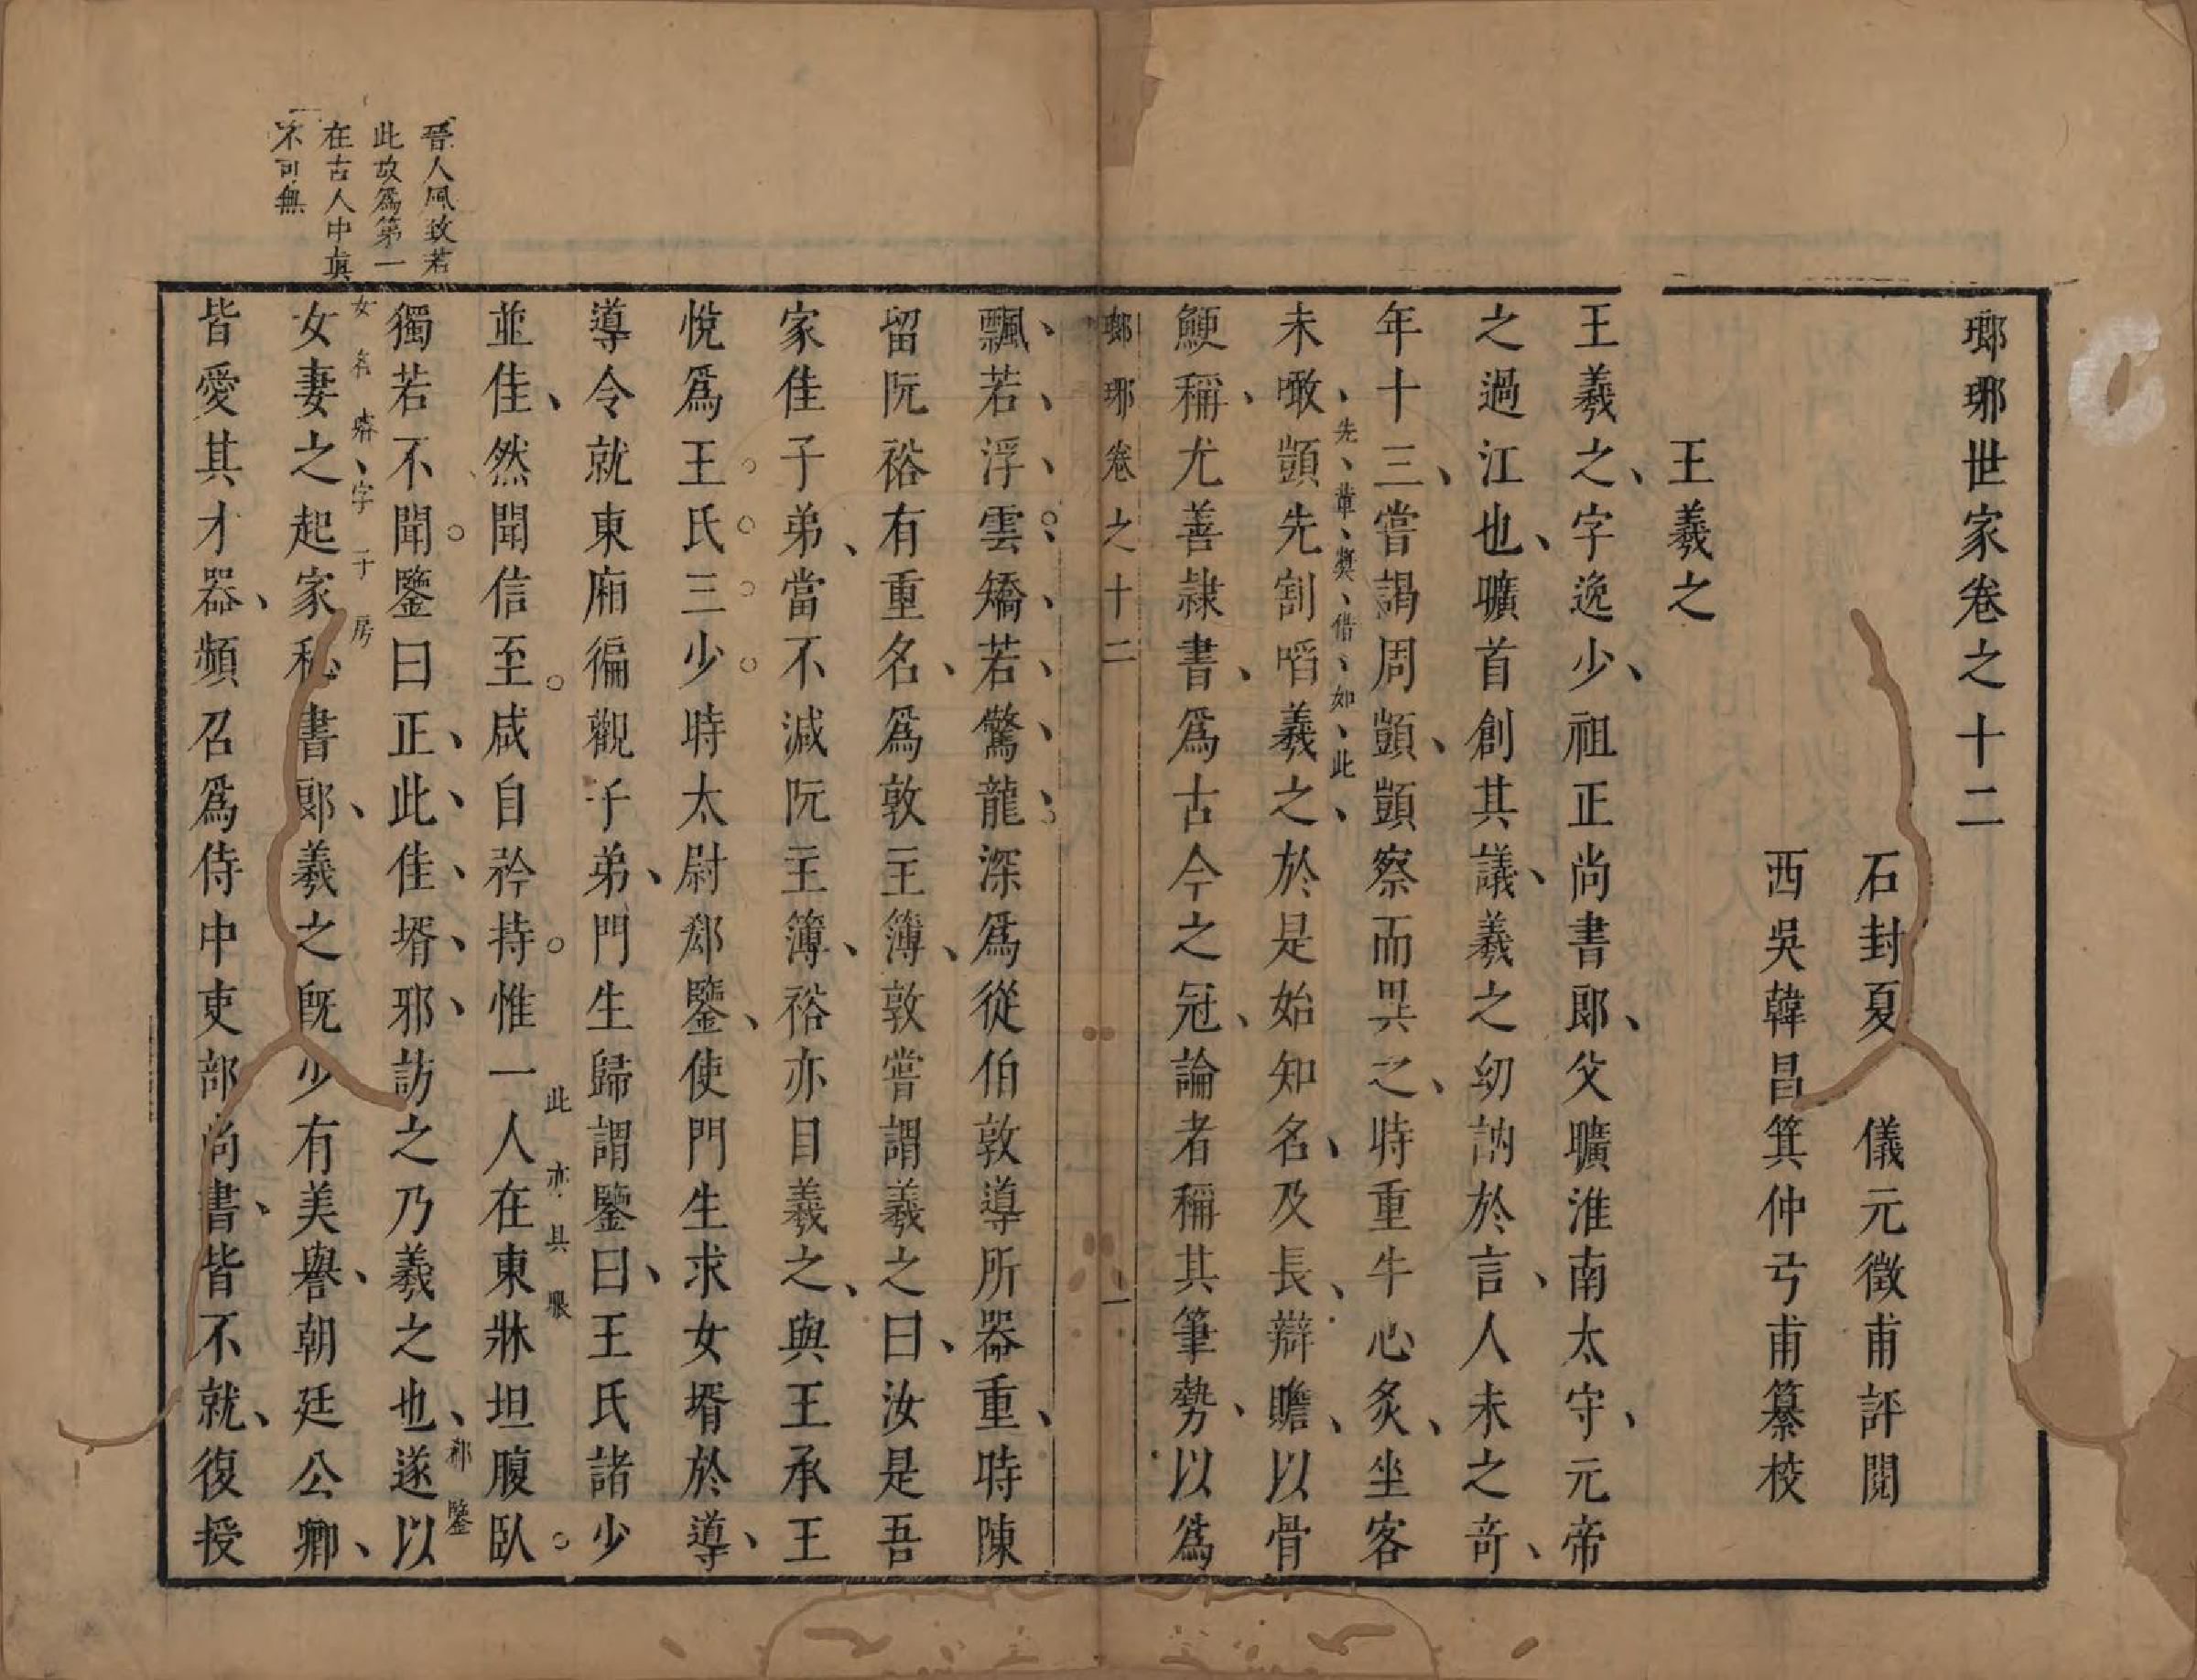 瑯琊世家卷之十二
石封夏　儀元徵甫評閱
西吳韓昌箕仲弓甫纂校
王羲之
王羲之、字逸少、祖正尚書郎、父曠淮南太守、元帝
之過江也、曠首創其議、羲之幼訥於言、人未之奇、
年十三、嘗謁周顗、顗察而異之、時重牛心炙、坐客
未噉、顗先割啗羲之、於是始知名、及長、辯贍、以骨
先、輩、奬、借、如、此、
鯁稱、尤善隸書、爲古今之冠、論者稱其筆勢、以爲
瑯琊卷之十二　一
飄若浮雲、矯若驚龍、深爲從伯敦導所器重、時陳
留阮裕有重名、爲敦主簿、敦嘗謂羲之曰、汝是吾
家佳子弟、當不減阮主簿、裕亦目羲之、與王承王
悅爲王氏三少。時太尉郗鑒、使門生求女壻於導、
導令就東廂徧觀子弟、門生歸謂鑒曰、王氏諸少
並佳、然聞信至。咸自矜持。惟一人在東牀坦腹臥。
此亦具眼
獨若不聞。鑒曰正、此、佳、壻、邪、訪之乃羲之也、遂以
郗鑒
女妻之起家秘書郎、羲之旣少有美譽、朝廷公卿、
女名璿、字子房
皆愛其才器、頻召爲侍中吏部尚書、皆不就、復授
晉人風致若
此故爲第一
在古人中眞
不可無